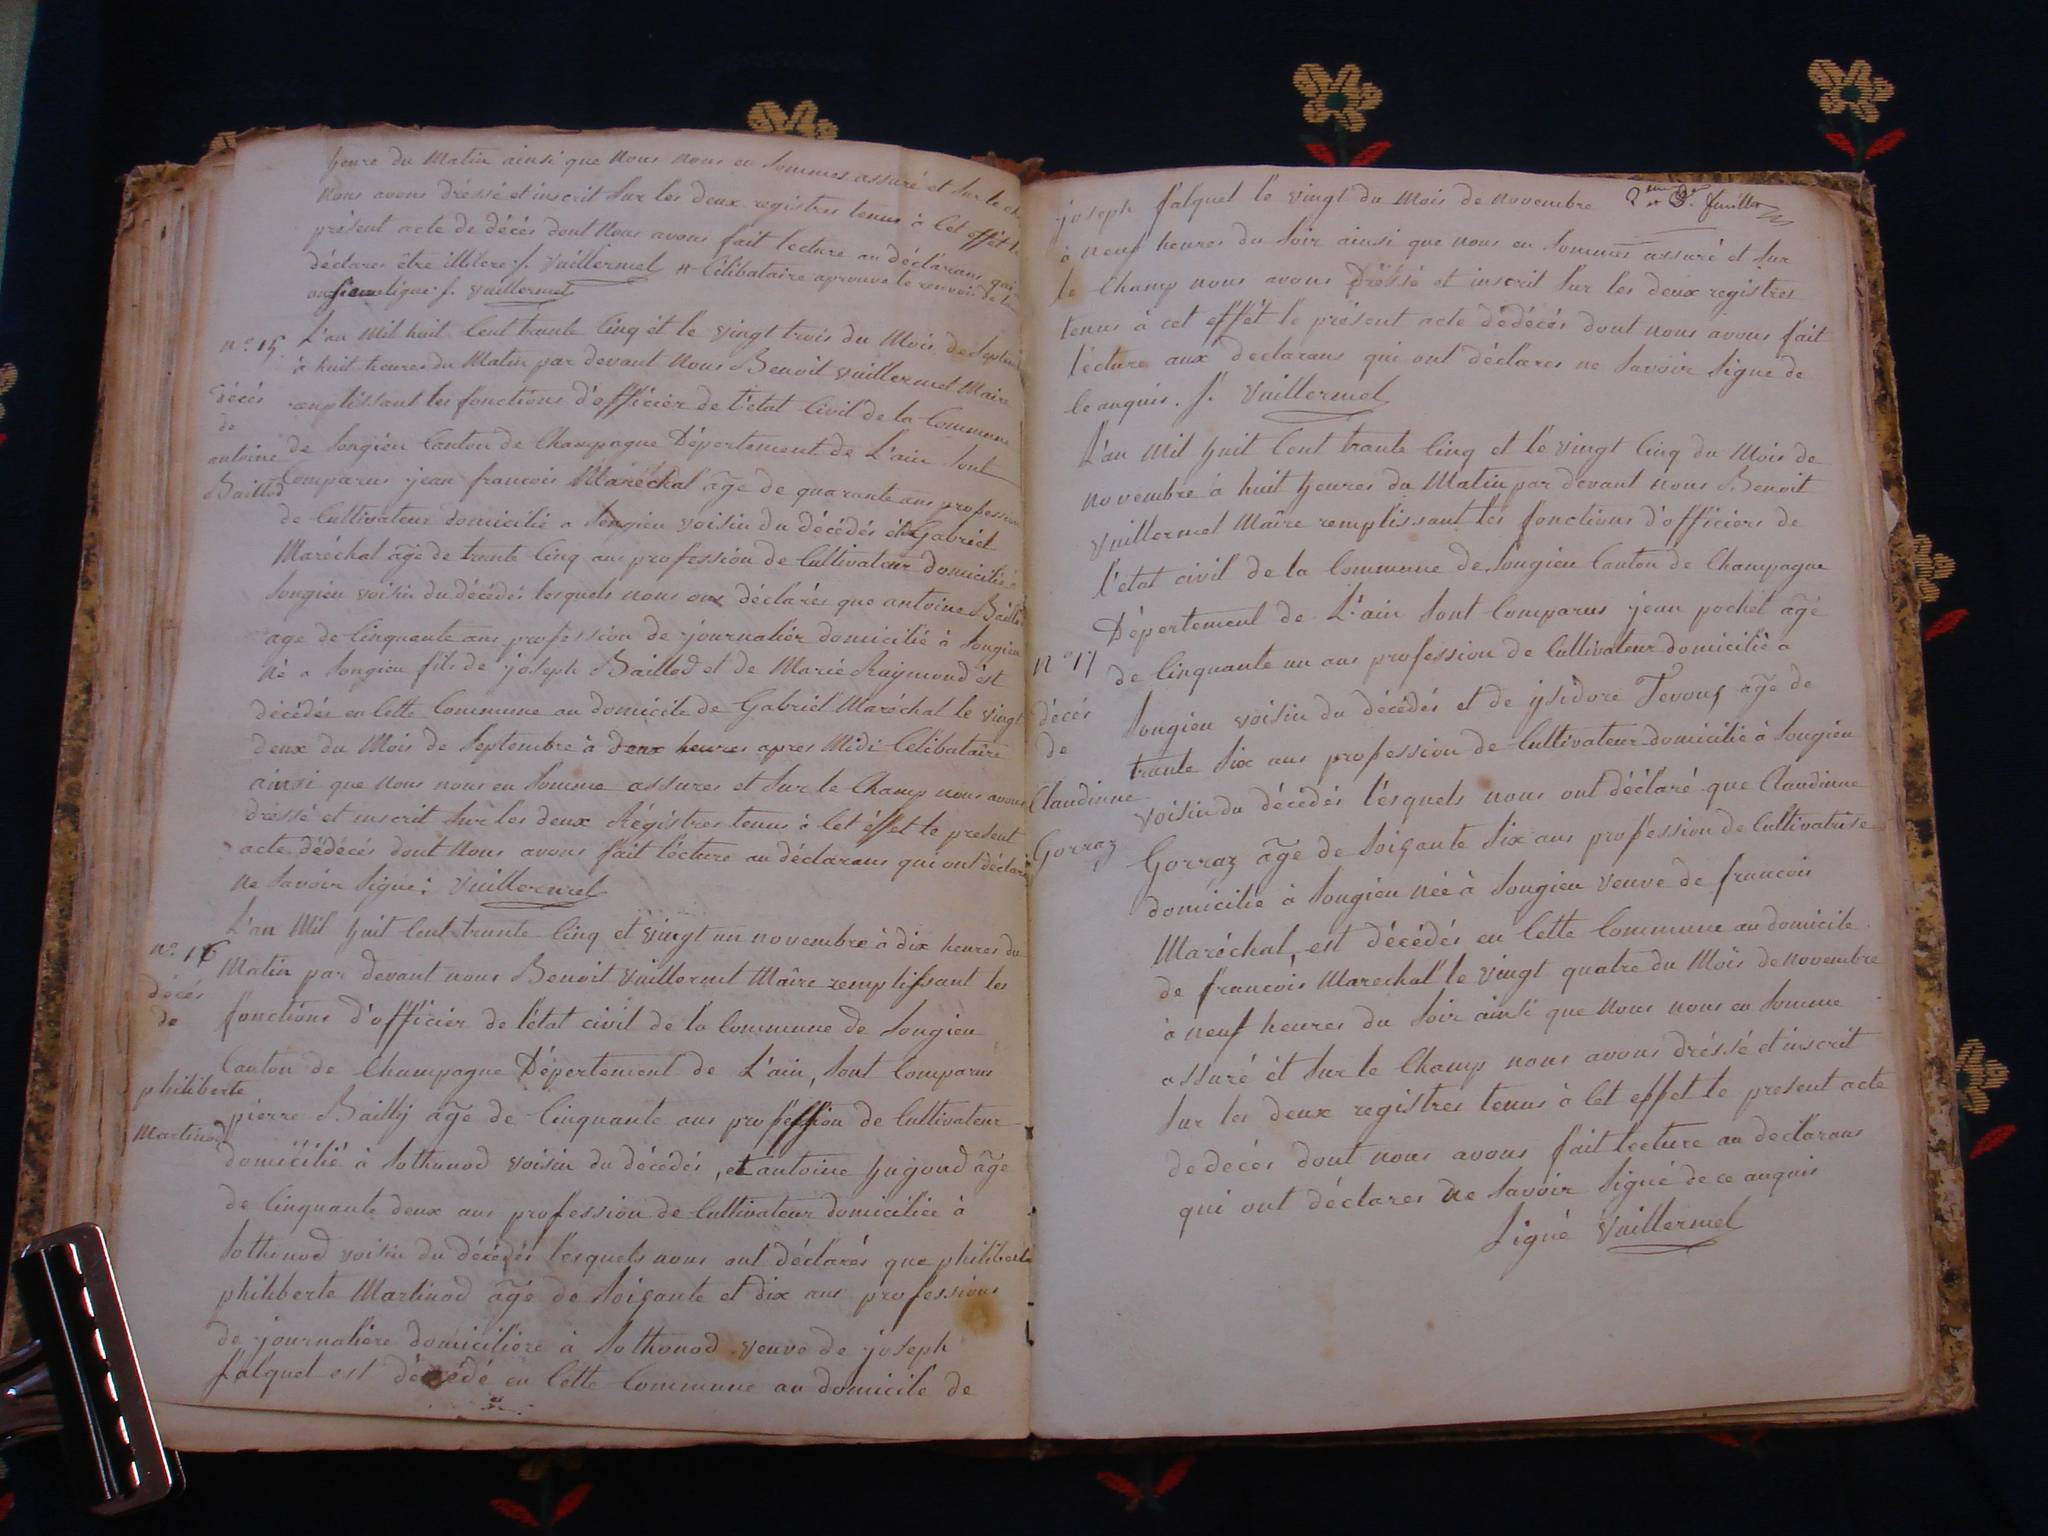 heure du Matin ainsi que Nous nous en sommes assuré et sur le
Nous avons dressé et inscrit sur les deux registres tenus à cet effet le
présent acte de décés dont Nous avons fait lecture au déclarans qui
déclares être illitere f. Vuillermet # Célibataire aprouve le renvoi de la
f. Vuillermet
n° 15
décés
de
antoine
Baillod
L'an Mil huit Cent trante Cinq et le vingt trois du Mois de Septem
à huit heures du Matin par devant Nous Benoit Vuillermet Maire
remplissant les fonctions d'officier de l'état Civil de la Commune
de Songieu Canton de Champagne Département de L'ain Sont
Comparus jean francois Maréchal âgé de quarante ans profession
de Cultivateur domicilié a Songieu voisin du décédés et Gabriel
Maréchal âgé de trante Cinq ans profession de Cultivateur domicilié
Songieu voisin du décédés lesquels nous ons déclarés que antoine Baillod
age de Cinquante ans profession de journalier domicilié à Songieu
Né a Songieu fils de joseph Baillod et de Marie Raymond est
décédés en Cette Commune au domicile de Gabriel Maréchal le vingt
deux du Mois de Septembre à deux heures apres Midi Célibataire
ainsi que nous nous en Somme assures et Sur le Champ nous avons
dressé et inscrit Sur les deux Régistres tenus à Cet effet le present
acte dédécés dont Nous avons fait lécture au déclarans qui ont déclaré
ne Savoir Signé: Vuillermet
n° 16
décés
de
philiberte
Martinod
L'an Mil huit Cent trante Cinq et vingt un novembre à dix heures du
Matin par devant nous Benoit Vuillermet Maire remplissant les
fonctions d'officier de l'état civil de la Commune de Songieu
Canton de Champagne Département de L'ain, Sont Comparus
pierre Bailly âgé de Cinquante ans profession de Cultivateur
domicilié à Sothonod voisin du décédés, et antoine hugoud âgé
de Cinquante deux ans profession de Cultivateur domiciliée à
Sothonod voisin du décédés lesquels nous ont déclarés que philiberte
philiberte Martinod âgé de Soixante et dix ans professions
de journalière domicilière à Sothonod veuve de joseph
falquet est décédé en Cette Commune au domicile de
joseph falquet le vingt du Mois de novembre
2me et 3. feuillet
à neuf heures du Soir ainsi que nous en Sommes assuré et Sur
le Champ nous avons Dressé et inscrit Sur les deux registres
tenus à cet effét le présent acte dédécés dont nous avons fait
lécture aux declarans qui ont déclares ne Savoir Signe de
ce anquis. f. Vuillermet
L'an Mil huit Cent trante Cinq et le vingt Cinq du Mois de
novembre à huit heures du Matin par devant nous Benoit
Vuillermet Maire remplissant les fonctions d'officiers de
l'état civil de la Commune de Songieu Canton de Champagne
Département de L'ain Sont Comparus jean pochet âgé
n° 17
décés
de
Claudinne
Gorraz
de Cinquante un ans profession de Cultivateur domicilié a
Songieu voisin du décédés et de ysidore Tevoux âgé de
trante Six ans profession de Cultivateur domicilié à Songieu
voisin du décédés lésquels nous ont déclaré que Claudinne
Gorraz âgé de Soixante Six ans profession de Cultivatrise
domicilié à Songieu née à Songieu veuve de francois
Maréchal, est décédés en Cette Commune au domicile
de francois Marechal le vingt quatre du Mois de novembre
à neuf heures du Soir ainsi que nous nous en Somme
assuré ét Sur le Champ nous avons dréssé et inscrit
Sur les deux registres tenus à Cet effet le present acte
dedecés dont nous avons fait lecture au declarans
qui ont déclares ne Savoir Signé de ce anquis
Signé Vuillermet